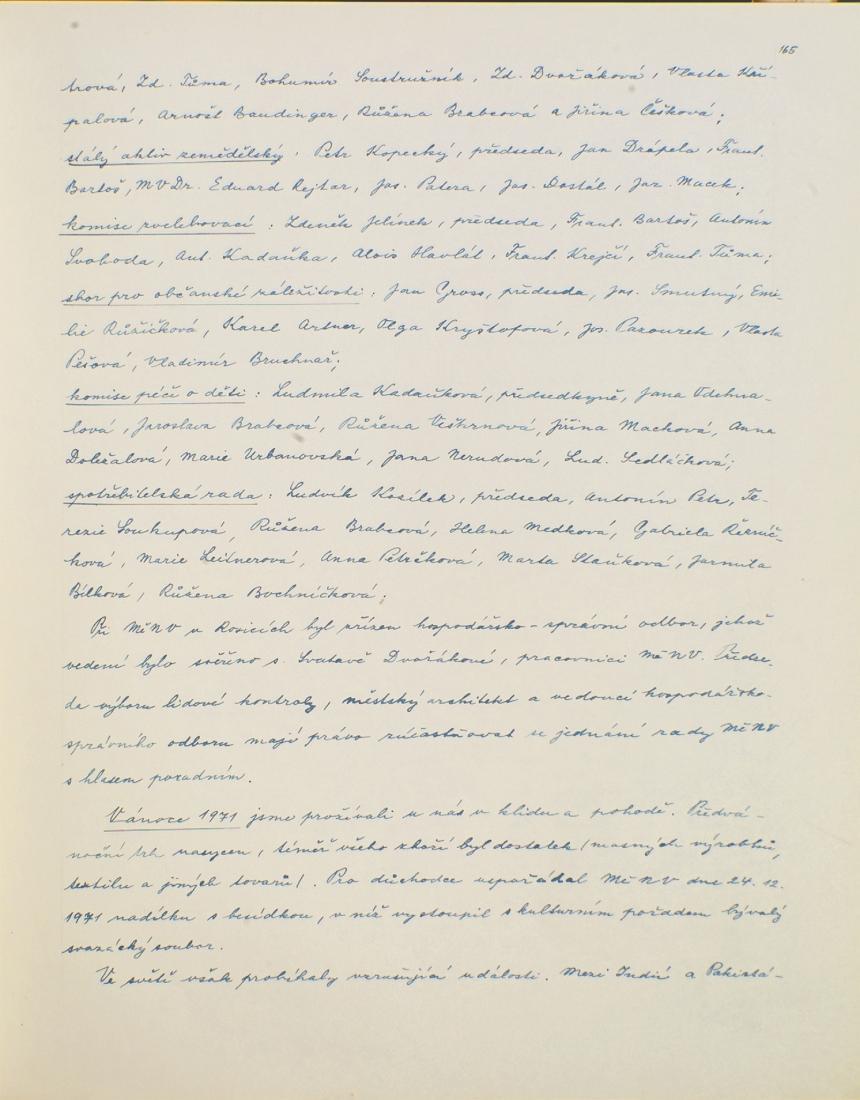 165
trová, Zd. Tůma, Bohumír Soustružník, Zd. Dvořáková, Vlasta Kří-
palová, Arnošt Baudinger, Růžena Brabcová a Jiřina Češková;
stálý aktiv zemědělský: Petr Kopecký, předseda, Jan Drápela, Frant.
Bartoš, MVDr. Eduard Rejtar, Jos. Patera, Jos. Dostál, Jar. Macek;
komise zvelebovací: Zdeněk Jelínek, předseda, Frant. Bartoš, Antonín
Svoboda, Ant. Kadaňka, Alois Havlát, Frant. Krejčí, Frant. Tůma;
sbor pro občanské záležitosti: Jan Gross, předseda, Jos. Smutný, Emi-
lie Růžičková, Karel Artner, Olga Kryštofová, Jos. Pazourek, Vlasta
Pešová, Vladimír Bruchnař;
komise péče o děti: Ludmila Kadaňková, předsedkyně, Jana Odehna-
lová, Jaroslava Brabcová, Růžena Veškrnová, Jiřina Machová, Anna
Doležalová, Marie Urbanovská, Jana Nerudová, Lud. Sedláčková;
spotřebitelská rada: Ludvík Kosílek, předseda, Antonín Petr, Te-
rezie Soukupová, Růžena Brabcová, Helena Medková, Gabriela Řezníč-
ková, Marie Leitnerová, Anna Petrčková, Marta Staňková, Jarmila
Bílková, Růžena Bochníčková;
Při MěNV v Rosicích byl zřízen hospodářsko-správní odbor, jehož
vedení bylo svěřeno s. Svatavě Dvořákové, pracovnici MěNV. Předse-
da výboru lidové kontroly, městský architekt a vedoucí hospodářsko-
správního odboru mají právo zúčastňovat se jednání rady MěNV
s hlasem poradním.
Vánoce 1971 jsme prožívali u nás v klidu a pohodě. Předvá-
noční trh nasycen, téměř všeho zboží byl dostatek (masných výrobků,
textilu a jiných tovarů). Pro důchodce uspořádal MěNV dne 24. 12.
1971 nadílku s besídkou, v níž vystoupil s kulturním pořadem bývalý
svazácký soubor.
Ve světě však probíhaly vzrušující události. Mezi Indií a Pakistá-